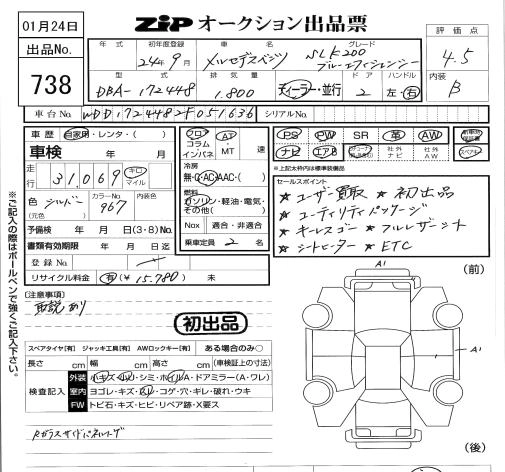 01月24日
ZiP オークション出品票
出品No.
738
評価点
4.5
内装
B
年式
初年度登録
24年9月
車名
メルセデスベンツ
グレード
SLK200
ブルーエフィシェンシー
型式
DBA-172448
排気量
1.800
ディーラー・並行
ドア
2
ハンドル
左・右
車台No.
WDD1724482F051636
シリアルNo.
車歴
自家用・レンタ・( )
車検
年 月
走行
31,069
キロ
マイル
色
シルバー
(元色
カラーNo.
967
内装色
予備検
年 月 日(3・8)No.
書類有効期限
年 月 日迄
登録No.
リサイクル料金
有(¥ 15.780) 未
フロア
コラム
インパネ
AT
・
MT
速
冷房
無・C・AC・AAC・( )
燃料
ガソリン・軽油・電気・
その他( )
Nox
適合・非適合
乗車定員
2
名
PS PW SR 革 AW
ナビ エアB
社外
ナビ
社外
AW
※上記太枠内は標準装備品
セールスポイント
★ユーザー買取 ★初出品
★ユーティリティパッケージ
★キーレスゴー ★フルレザーシート
★シートヒーター ★ETC
※ご記入の際はボールペンで強くご記入下さい。
[注意事項]
再説あり
初出品
スペアタイヤ[有] ジャッキ工具[有] AWロックキー[有] ある場合のみ○
長さ cm 幅 cm 高さ cm (車検証上の寸法)
検査記入
外装
小キズ・凹・シミ・ホイルA・ドアミラー(A・ワレ)
室内
ヨゴレ・キズ・スレ・コゲ・穴・キレ・破れ・ウキ
FW
トビ石・キズ・ヒビ・リペア跡・X要ス
(前)
A1
A1
A1
(後)